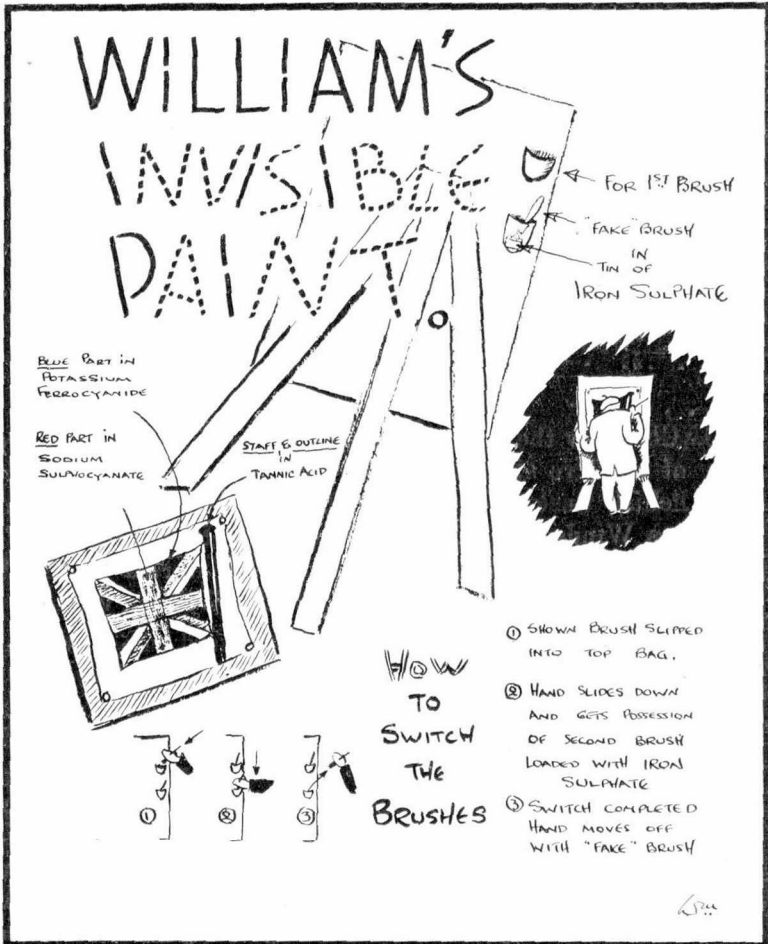 WILLIAM'S
INVISIBLE
PAINT
FOR 1ST BRUSH
"FAKE" BRUSH
IN
TIN OF
IRON SULPHATE
BLUE PART IN
POTASSIUM
FERROCYANIDE
RED PART IN
SODIUM
SULPHOCYANATE
STAFF & OUTLINE
IN
TANNIC ACID
HOW
TO
SWITCH
THE
BRUSHES
① SHOWN BRUSH SLIPPED
INTO TOP BAG.
② HAND SLIDES DOWN
AND GETS POSSESSION
OF SECOND BRUSH
LOADED WITH IRON
SULPHATE
③ SWITCH COMPLETED
HAND MOVES OFF
WITH "FAKE" BRUSH
① ② ③